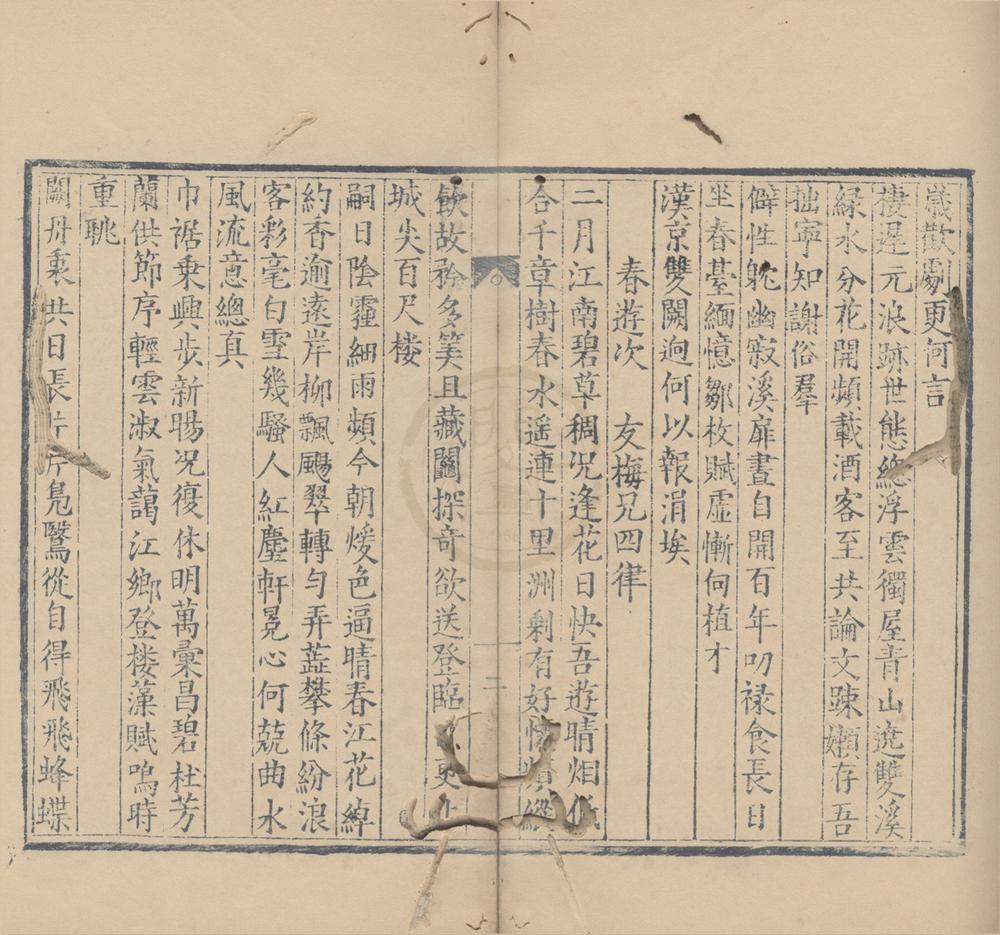 歲歡劇更何言
棲遲元浪跡世態總浮雲獨屋青山遶雙溪
緑水分花開頻載酒客至共論文踈嬾存吾
拙寧知謝俗羣
僻性躭幽寂溪扉晝自開百年叨禄食長日
坐春臺緬憶鄒枚賦虛慚何植才
漢京雙闕迥何以報涓埃
春遊次　友梅兄四律
二月江南碧草稠况逢花日快吾遊晴烟低
合千章樹春水遥連十里洲剩有好懷頻縱
二
飲故矜多筭且藏鬮探竒欲送登臨更上
城尖百尺楼
嗣日陰霾細雨頻今朝煖色逼晴春江花綽
約香逾遠岸柳飄颺翠轉勻弄蕋攀條紛浪
客彩毫白雪幾騷人紅塵軒冕心何兢曲水
風流意總真
巾裾乗興步新暘况復休明萬彚昌碧杜芳
蘭供節序輕雲淑氣藹江鄉登楼藻賦鳴時
重眺
闕丹衷共日長片片鳬鷖從自得飛飛蜂蝶